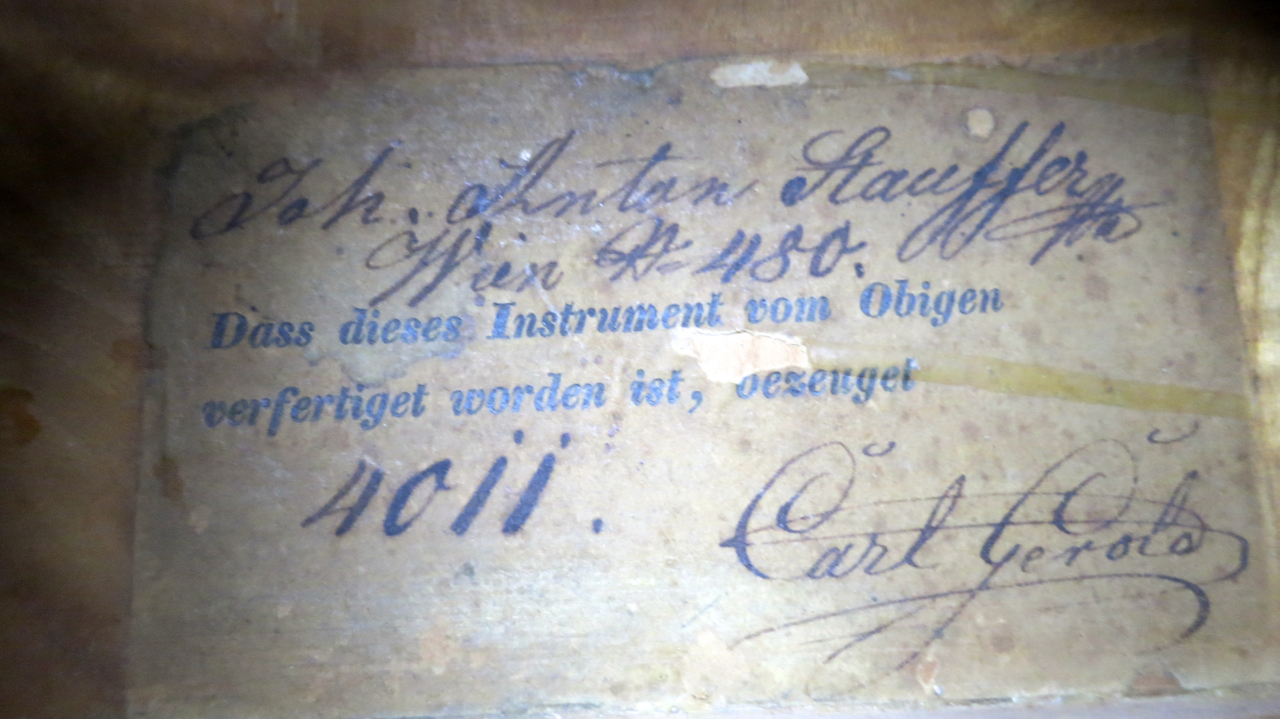 Joh. Anton Stauffer
Wien № 480.
Dass dieses Instrument vom Obigen
verfertiget worden ist, bezeuget
4011.
Carl Gerold